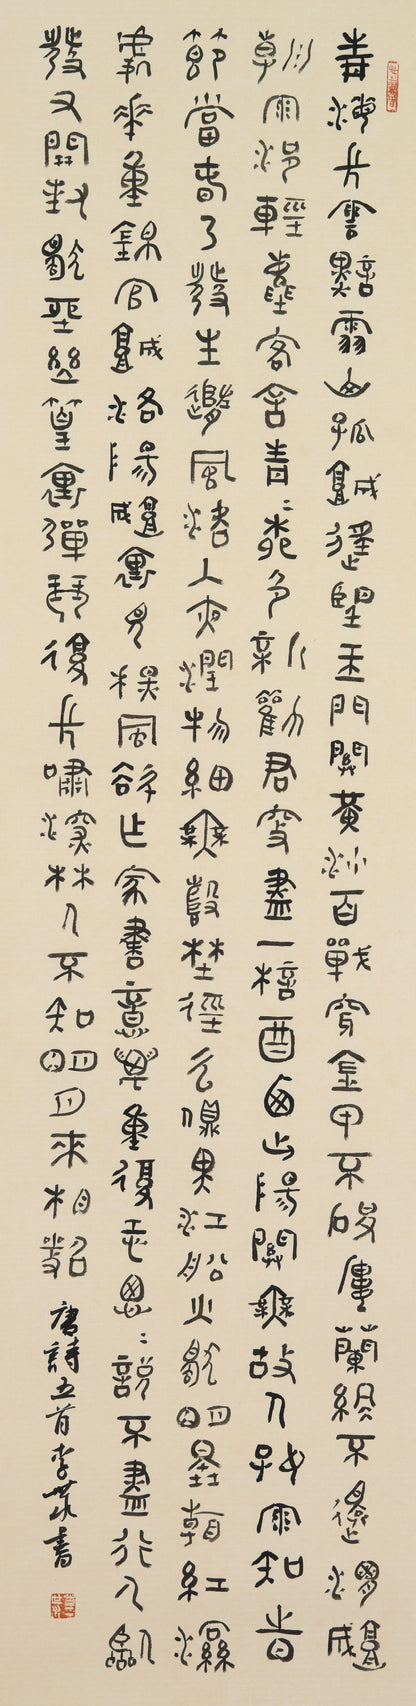 青海長雲黯雪山孤城遙望玉門關黃沙百戰穿金甲不破樓蘭終不還渭城
朝雨浥輕塵客舍青〻柳色新勸君更盡一杯酒西出陽關無故人好雨知時
節當春乃發生隨風潛入夜潤物細無聲野徑雲俱黑江船火獨明曉看紅濕
處花重錦官城洛陽城裏見秋風欲作家書意萬重復恐怱〻說不盡行人臨
發又開封獨坐幽篁裏彈琴復長嘯深林人不知明月來相照 唐詩五首李書